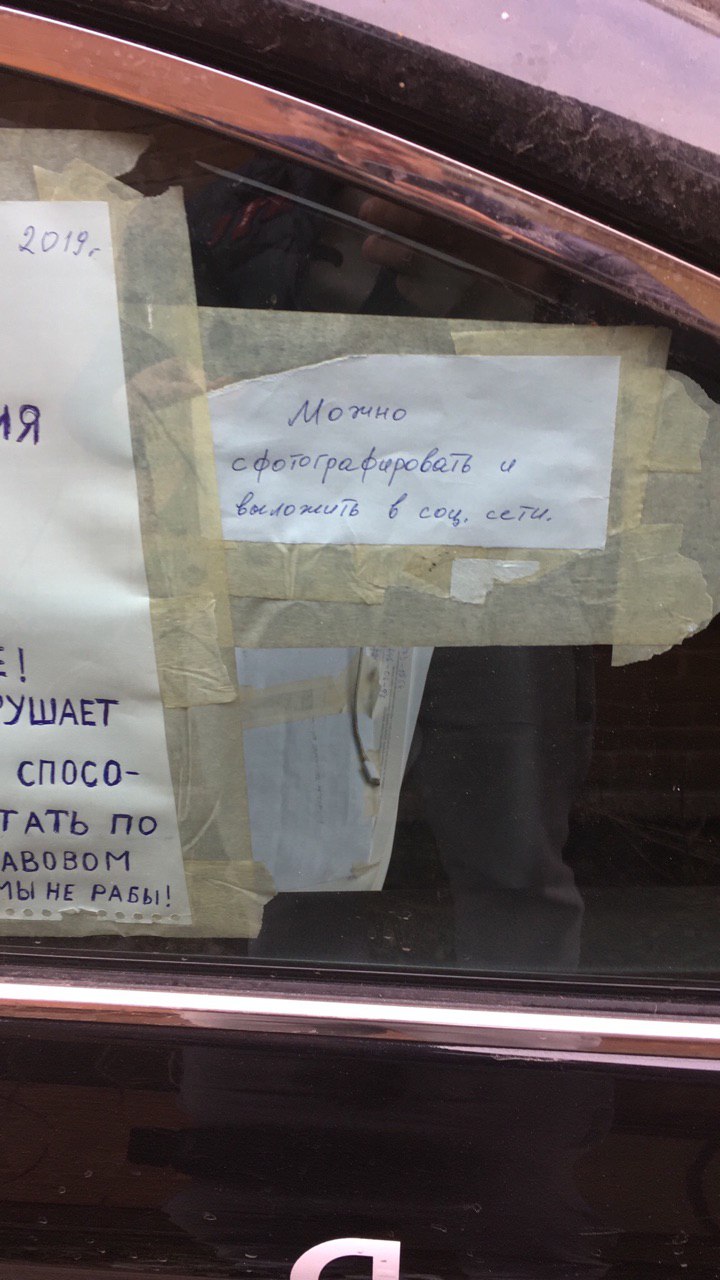 2019г.
ИЯ
Е!
РУШАЕТ
СПОСО-
ТАТЬ ПО
АВОВОМ
МЫ НЕ РАБЫ!
Можно
сфотографировать и
выложить в соц. сети.
Я